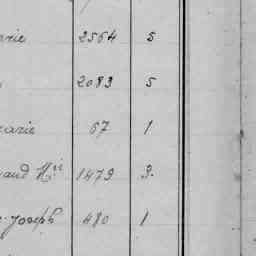 arie 2564 5
2083 5
arie 67 1
aud Hri 1479 3.
Joseph 480 1